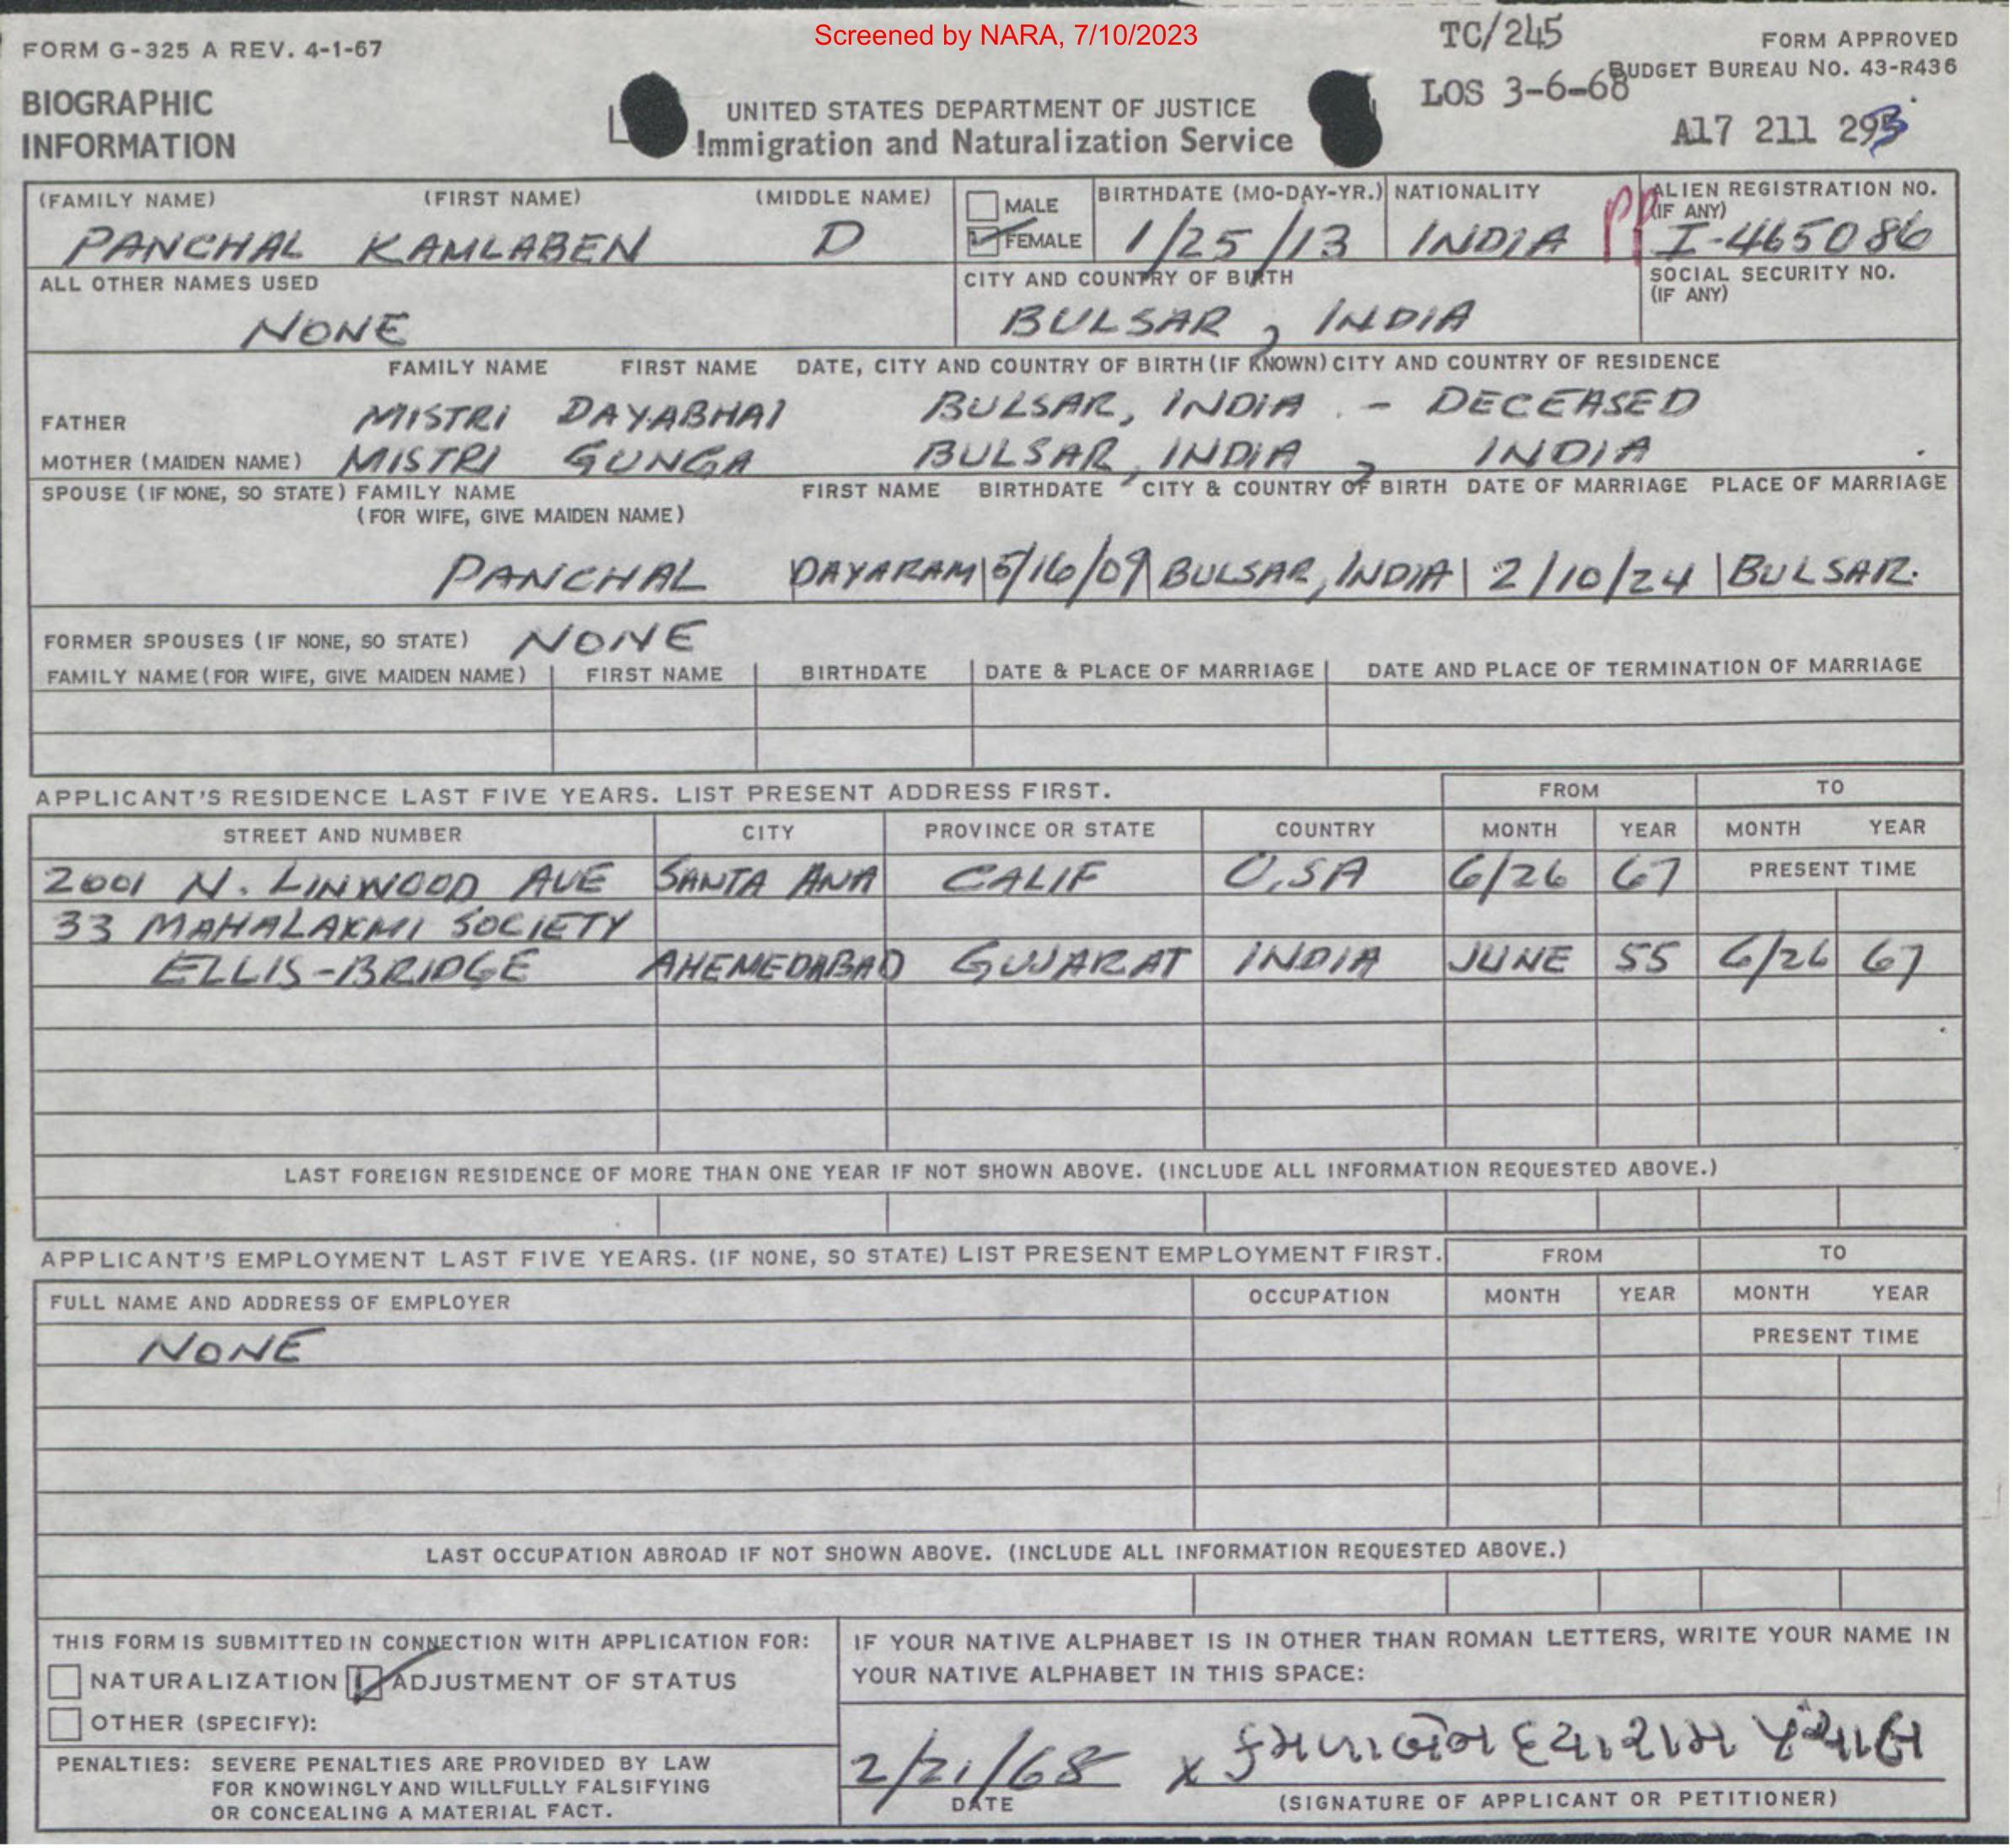 Screened by NARA, 7/10/2023
FORM G-325 A REV. 4-1-67
TC/245
FORM APPROVED
BUDGET BUREAU No. 43-R436
LOS 3-6-68
BIOGRAPHIC
INFORMATION
UNITED STATES DEPARTMENT OF JUSTICE
Immigration and Naturalization Service
A17 211 293
(FAMILY NAME) (FIRST NAME) (MIDDLE NAME) MALE BIRTHDATE (MO-DAY-YR.) NATIONALITY ALIEN REGISTRATION NO.
(IF ANY)
PANCHAL KAMLABEN D FEMALE 1/25/13 INDIA PP I-465086
ALL OTHER NAMES USED CITY AND COUNTRY OF BIRTH SOCIAL SECURITY NO.
(IF ANY)
NONE BULSAR, INDIA
FAMILY NAME FIRST NAME DATE, CITY AND COUNTRY OF BIRTH (IF KNOWN) CITY AND COUNTRY OF RESIDENCE
FATHER MISTRI DAYABHAI BULSAR, INDIA - DECEASED
MOTHER (MAIDEN NAME) MISTRI GUNGA BULSAR, INDIA, INDIA
SPOUSE (IF NONE, SO STATE) FAMILY NAME FIRST NAME BIRTHDATE CITY & COUNTRY OF BIRTH DATE OF MARRIAGE PLACE OF MARRIAGE
(FOR WIFE, GIVE MAIDEN NAME)
PANCHAL DAYARAM 5/16/09 BULSAR, INDIA 2/10/24 BULSAR.
FORMER SPOUSES (IF NONE, SO STATE) NONE
FAMILY NAME (FOR WIFE, GIVE MAIDEN NAME) FIRST NAME BIRTHDATE DATE & PLACE OF MARRIAGE DATE AND PLACE OF TERMINATION OF MARRIAGE
APPLICANT'S RESIDENCE LAST FIVE YEARS. LIST PRESENT ADDRESS FIRST. FROM TO
STREET AND NUMBER CITY PROVINCE OR STATE COUNTRY MONTH YEAR MONTH YEAR
2001 N. LINWOOD AVE SANTA ANA CALIF U.SA 6/26 67 PRESENT TIME
33 MAHALAXMI SOCIETY
ELLIS-BRIDGE AHEMEDABAD GUJARAT INDIA JUNE 55 6/26 67
LAST FOREIGN RESIDENCE OF MORE THAN ONE YEAR IF NOT SHOWN ABOVE. (INCLUDE ALL INFORMATION REQUESTED ABOVE.)
APPLICANT'S EMPLOYMENT LAST FIVE YEARS. (IF NONE, SO STATE) LIST PRESENT EMPLOYMENT FIRST. FROM TO
FULL NAME AND ADDRESS OF EMPLOYER OCCUPATION MONTH YEAR MONTH YEAR
NONE PRESENT TIME
LAST OCCUPATION ABROAD IF NOT SHOWN ABOVE. (INCLUDE ALL INFORMATION REQUESTED ABOVE.)
THIS FORM IS SUBMITTED IN CONNECTION WITH APPLICATION FOR:
NATURALIZATION ADJUSTMENT OF STATUS
OTHER (SPECIFY):
PENALTIES: SEVERE PENALTIES ARE PROVIDED BY LAW
FOR KNOWINGLY AND WILLFULLY FALSIFYING
OR CONCEALING A MATERIAL FACT.
IF YOUR NATIVE ALPHABET IS IN OTHER THAN ROMAN LETTERS, WRITE YOUR NAME IN
YOUR NATIVE ALPHABET IN THIS SPACE:
2/21/68 x કમળાબેન દયારામ પંચાલ
DATE (SIGNATURE OF APPLICANT OR PETITIONER)